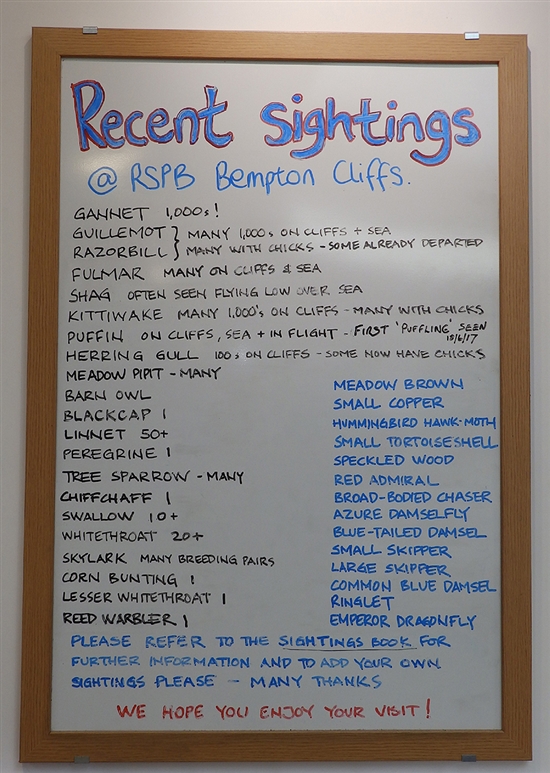 Recent Sightings
@ RSPB Bempton Cliffs.
GANNET 1,000s!
GUILLEMOT } MANY 1,000s ON CLIFFS + SEA
RAZORBILL } MANY WITH CHICKS - SOME ALREADY DEPARTED
FULMAR MANY ON CLIFFS & SEA
SHAG OFTEN SEEN FLYING LOW OVER SEA
KITTIWAKE MANY 1,000's ON CLIFFS - MANY WITH CHICKS
PUFFIN ON CLIFFS, SEA + IN FLIGHT - FIRST 'PUFFLING' SEEN
18/6/17
HERRING GULL 100s ON CLIFFS - SOME NOW HAVE CHICKS
MEADOW PIPIT - MANY
BARN OWL
BLACKCAP 1
LINNET 50+
PEREGRINE 1
TREE SPARROW - MANY
CHIFFCHAFF 1
SWALLOW 10+
WHITETHROAT 20+
SKYLARK MANY BREEDING PAIRS
CORN BUNTING 1
LESSER WHITETHROAT 1
REED WARBLER 1
MEADOW BROWN
SMALL COPPER
HUMMINGBIRD HAWK-MOTH
SMALL TORTOISESHELL
SPECKLED WOOD
RED ADMIRAL
BROAD-BODIED CHASER
AZURE DAMSELFLY
BLUE-TAILED DAMSEL
SMALL SKIPPER
LARGE SKIPPER
COMMON BLUE DAMSEL
RINGLET
EMPEROR DRAGONFLY
PLEASE REFER TO THE SIGHTINGS BOOK FOR
FURTHER INFORMATION AND TO ADD YOUR OWN
SIGHTINGS PLEASE - MANY THANKS
WE HOPE YOU ENJOY YOUR VISIT!